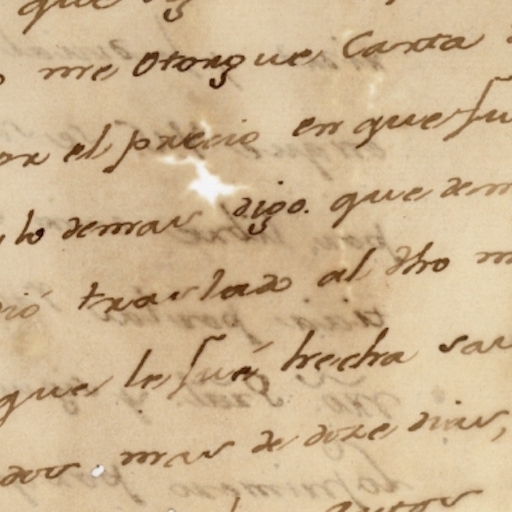 que
me otorgue Carta
el precio en que fu
lo demas digo. que dem
dió traslado al dho m
que le fué hecha sa
dos mas de doze dias,
autos